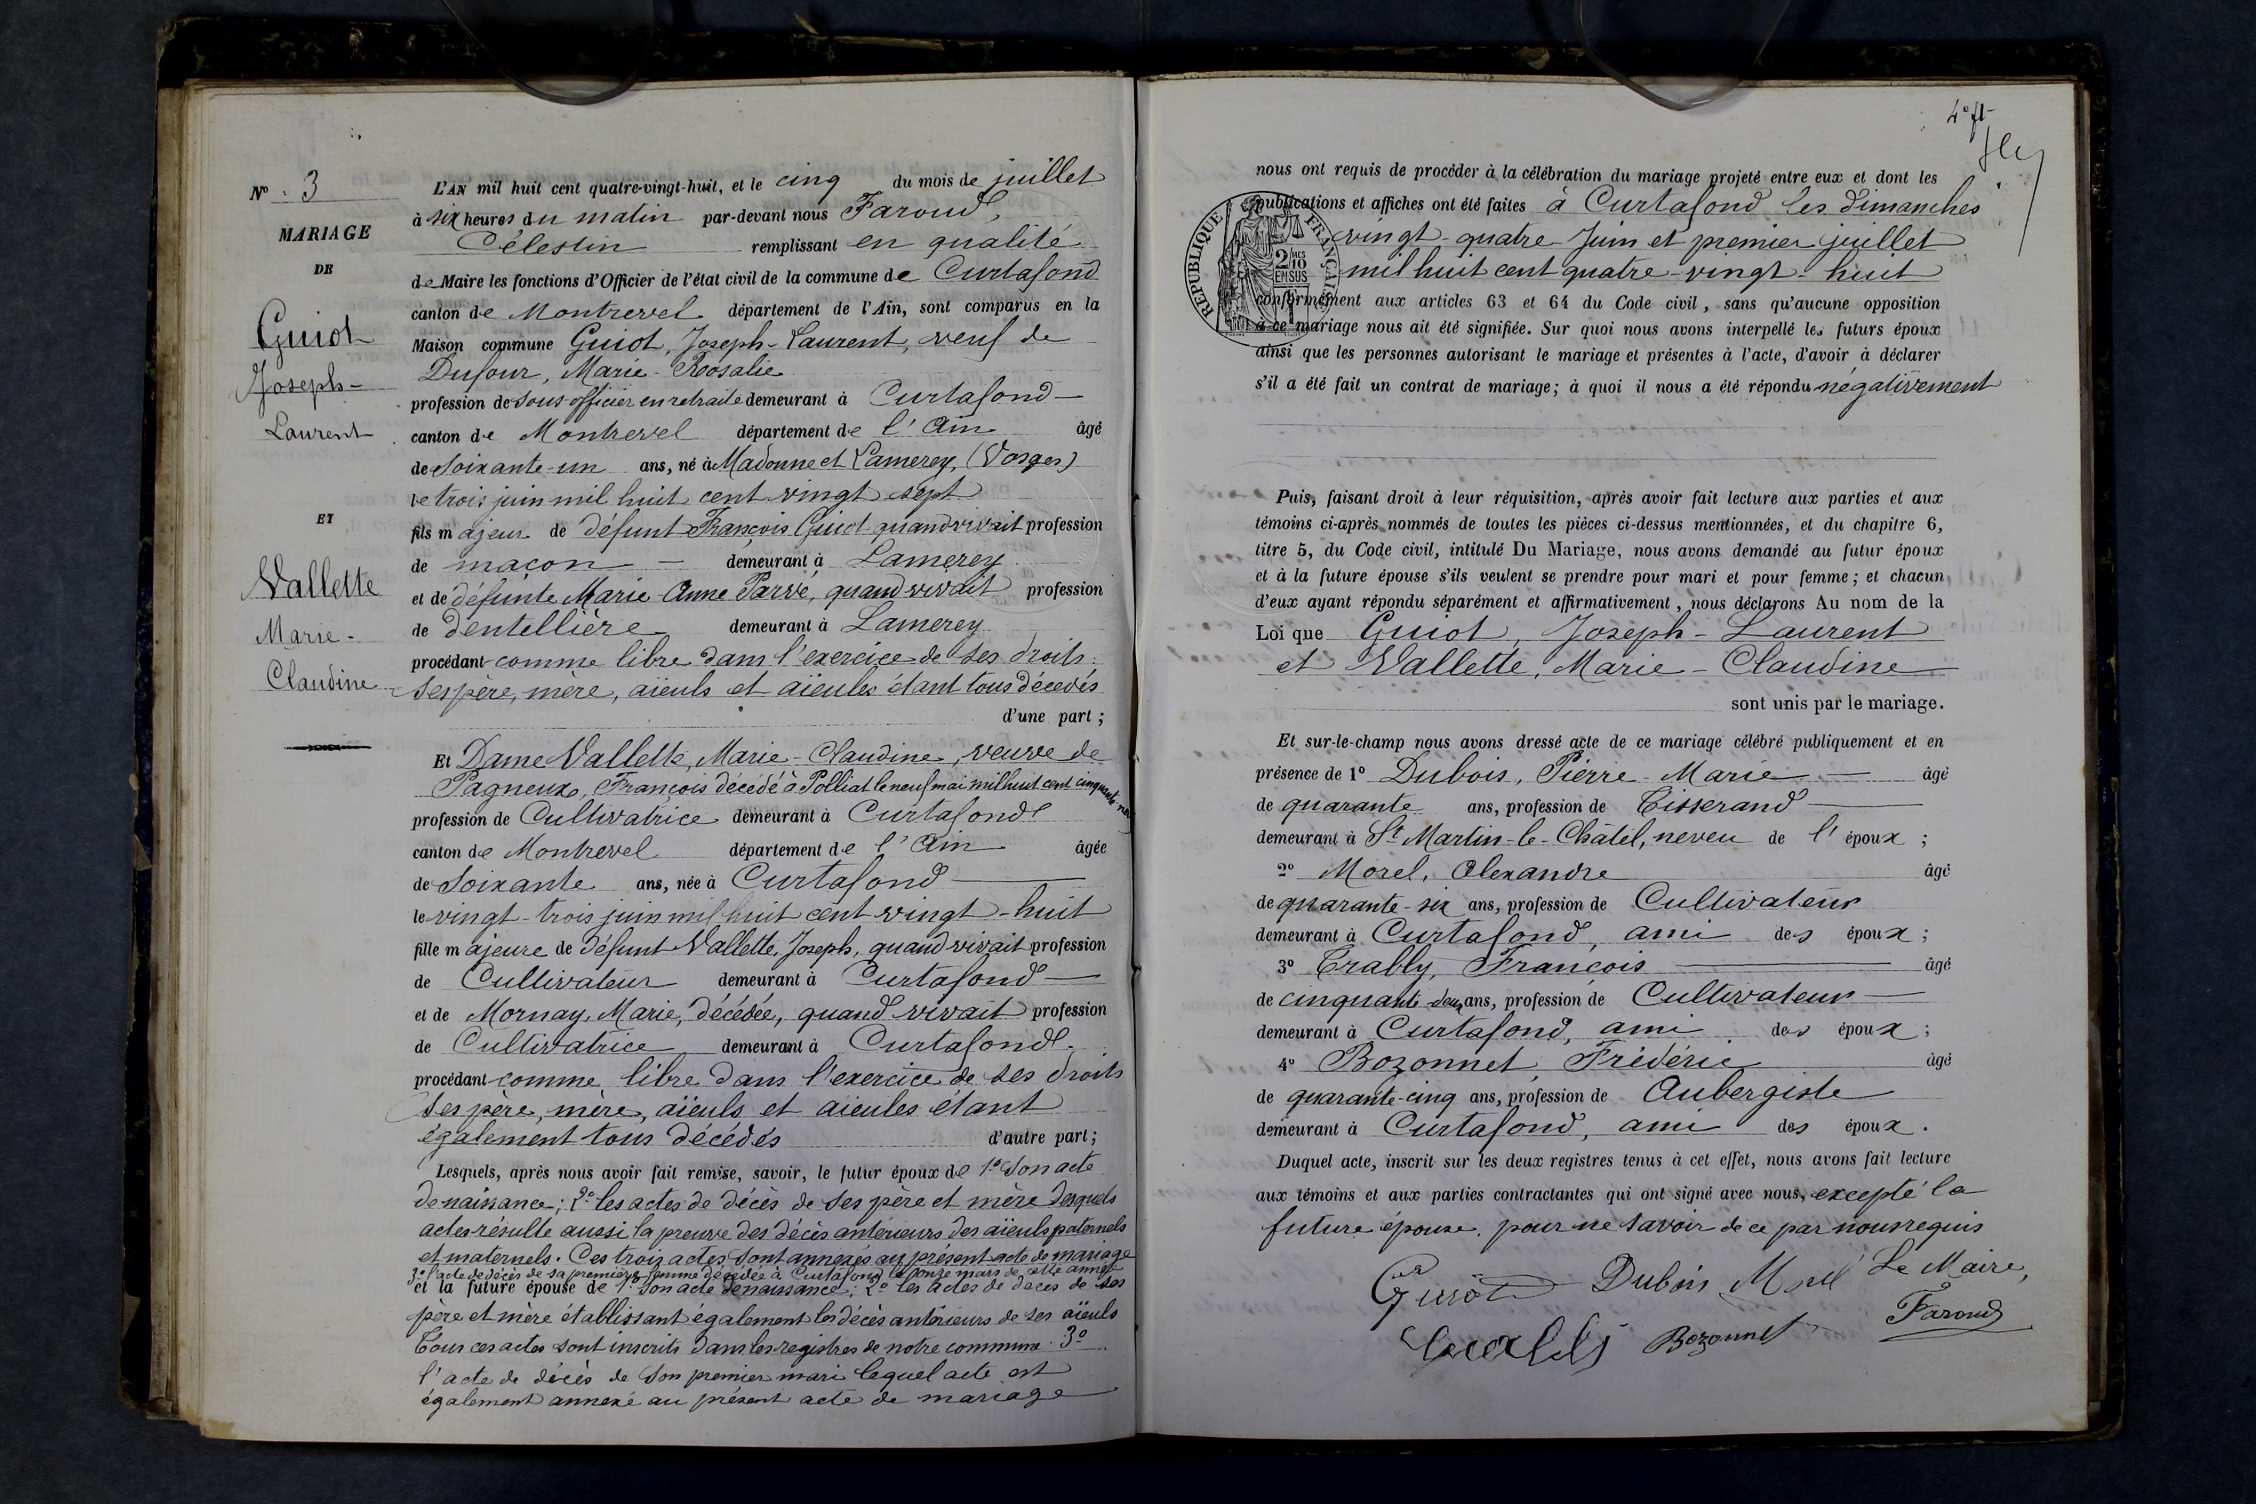 Nº 3
MARIAGE
DE
Guiot
Joseph-
Laurent
ET
Vallette
Marie-
Claudine
L'AN mil huit cent quatre-vingt-huit, et le cinq du mois de juillet
à six heures du matin par-devant nous Faroud,
Célestin remplissant en qualité
de Maire les fonctions d'Officier de l'état civil de la commune de Curtafond
canton de Montrevel département de l'Ain, sont comparus en la
Maison commune Guiot, Joseph-Laurent, veuf de
Dufour, Marie-Rosalie
profession de sous officier en retraite demeurant à Curtafond
canton de Montrevel département de l'Ain âgé
de soixante-un ans, né à Madonne et Lamerey, (Vosges)
le trois juin mil huit cent vingt sept
fils majeur de défunt François Guiot quand vivait profession
de maçon demeurant à Lamerey
et de défunte Marie Anne Parvé, quand vivait profession
de dentellière demeurant à Lamerey
procédant comme libre dans l'exercice de ses droits.
Ses père, mère, aïeuls et aïeules étant tous décédés
d'une part;
Et Dame Vallette, Marie-Claudine, veuve de
Pagneux, François décédé à Polliat le neuf mai mil huit cent cinquante-neuf
profession de Cultivatrice demeurant à Curtafond
canton de Montrevel département de l'Ain âgée
de soixante ans, née à Curtafond
le vingt-trois juin mil huit cent vingt-huit
fille majeure de défunt Vallette, Joseph, quand vivait profession
de Cultivateur demeurant à Curtafond
et de Mornay, Marie, décédée, quand vivait profession
de Cultivatrice demeurant à Curtafond.
procédant comme libre dans l'exercice de ses droits
Ses père, mère, aïeuls et aïeules étant
également tous décédés d'autre part;
Lesquels, après nous avoir fait remise, savoir, le futur époux de 1º Son acte
de naissance; 2º les actes de décès de ses père et mère desquels
actes résulte aussi la preuve des décès antérieurs des aïeuls paternels
et maternels. Ces trois actes sont annexés au présent acte de mariage
3º l'acte de décès de sa première femme décédée à Curtafond le onze mars de cette année
et la future épouse de 1º Son acte de naissance; 2º les actes de décès de ses
père et mère établissant également les décès antérieurs de ses aïeuls
Tous ces actes sont inscrits dans les registres de notre commune 3º
l'acte de décès de son premier mari lequel acte est
également annexé au présent acte de mariage
4º ft
nous ont requis de procéder à la célébration du mariage projeté entre eux et dont les
publications et affiches ont été faites à Curtafond les dimanches
vingt-quatre Juin et premier juillet
mil huit cent quatre-vingt-huit
RÉPUBLIQUE FRANÇAISE
2/10 MES
EN SUS
conformément aux articles 63 et 64 du Code civil, sans qu'aucune opposition
à ce mariage nous ait été signifiée. Sur quoi nous avons interpellé les futurs époux
ainsi que les personnes autorisant le mariage et présentes à l'acte, d'avoir à déclarer
s'il a été fait un contrat de mariage; à quoi il nous a été répondu négativement
Puis, faisant droit à leur réquisition, après avoir fait lecture aux parties et aux
témoins ci-après nommés de toutes les pièces ci-dessus mentionnées, et du chapitre 6,
titre 5, du Code civil, intitulé Du Mariage, nous avons demandé au futur époux
et à la future épouse s'ils veulent se prendre pour mari et pour femme; et chacun
d'eux ayant répondu séparément et affirmativement, nous déclarons Au nom de la
Loi que Guiot, Joseph-Laurent
et Vallette, Marie-Claudine
sont unis par le mariage.
Et sur-le-champ nous avons dressé acte de ce mariage célébré publiquement et en
présence de 1º Dubois, Pierre-Marie âgé
de quarante ans, profession de Tisserand
demeurant à St Martin-le-Châtel, neveu de l'époux;
2º Morel, Alexandre âgé
de quarante-six ans, profession de Cultivateur
demeurant à Curtafond, ami des époux;
3º Trably, François âgé
de cinquante deux ans, profession de Cultivateur
demeurant à Curtafond, ami des époux;
4º Bozonnet, Frédéric âgé
de quarante-cinq ans, profession de Aubergiste
demeurant à Curtafond, ami des époux.
Duquel acte, inscrit sur les deux registres tenus à cet effet, nous avons fait lecture
aux témoins et aux parties contractantes qui ont signé avec nous, excepté la
future épouse pour ne savoir de ce par nous requis
Guiot Dubois Morel Le Maire,
Bozonnet Faroud